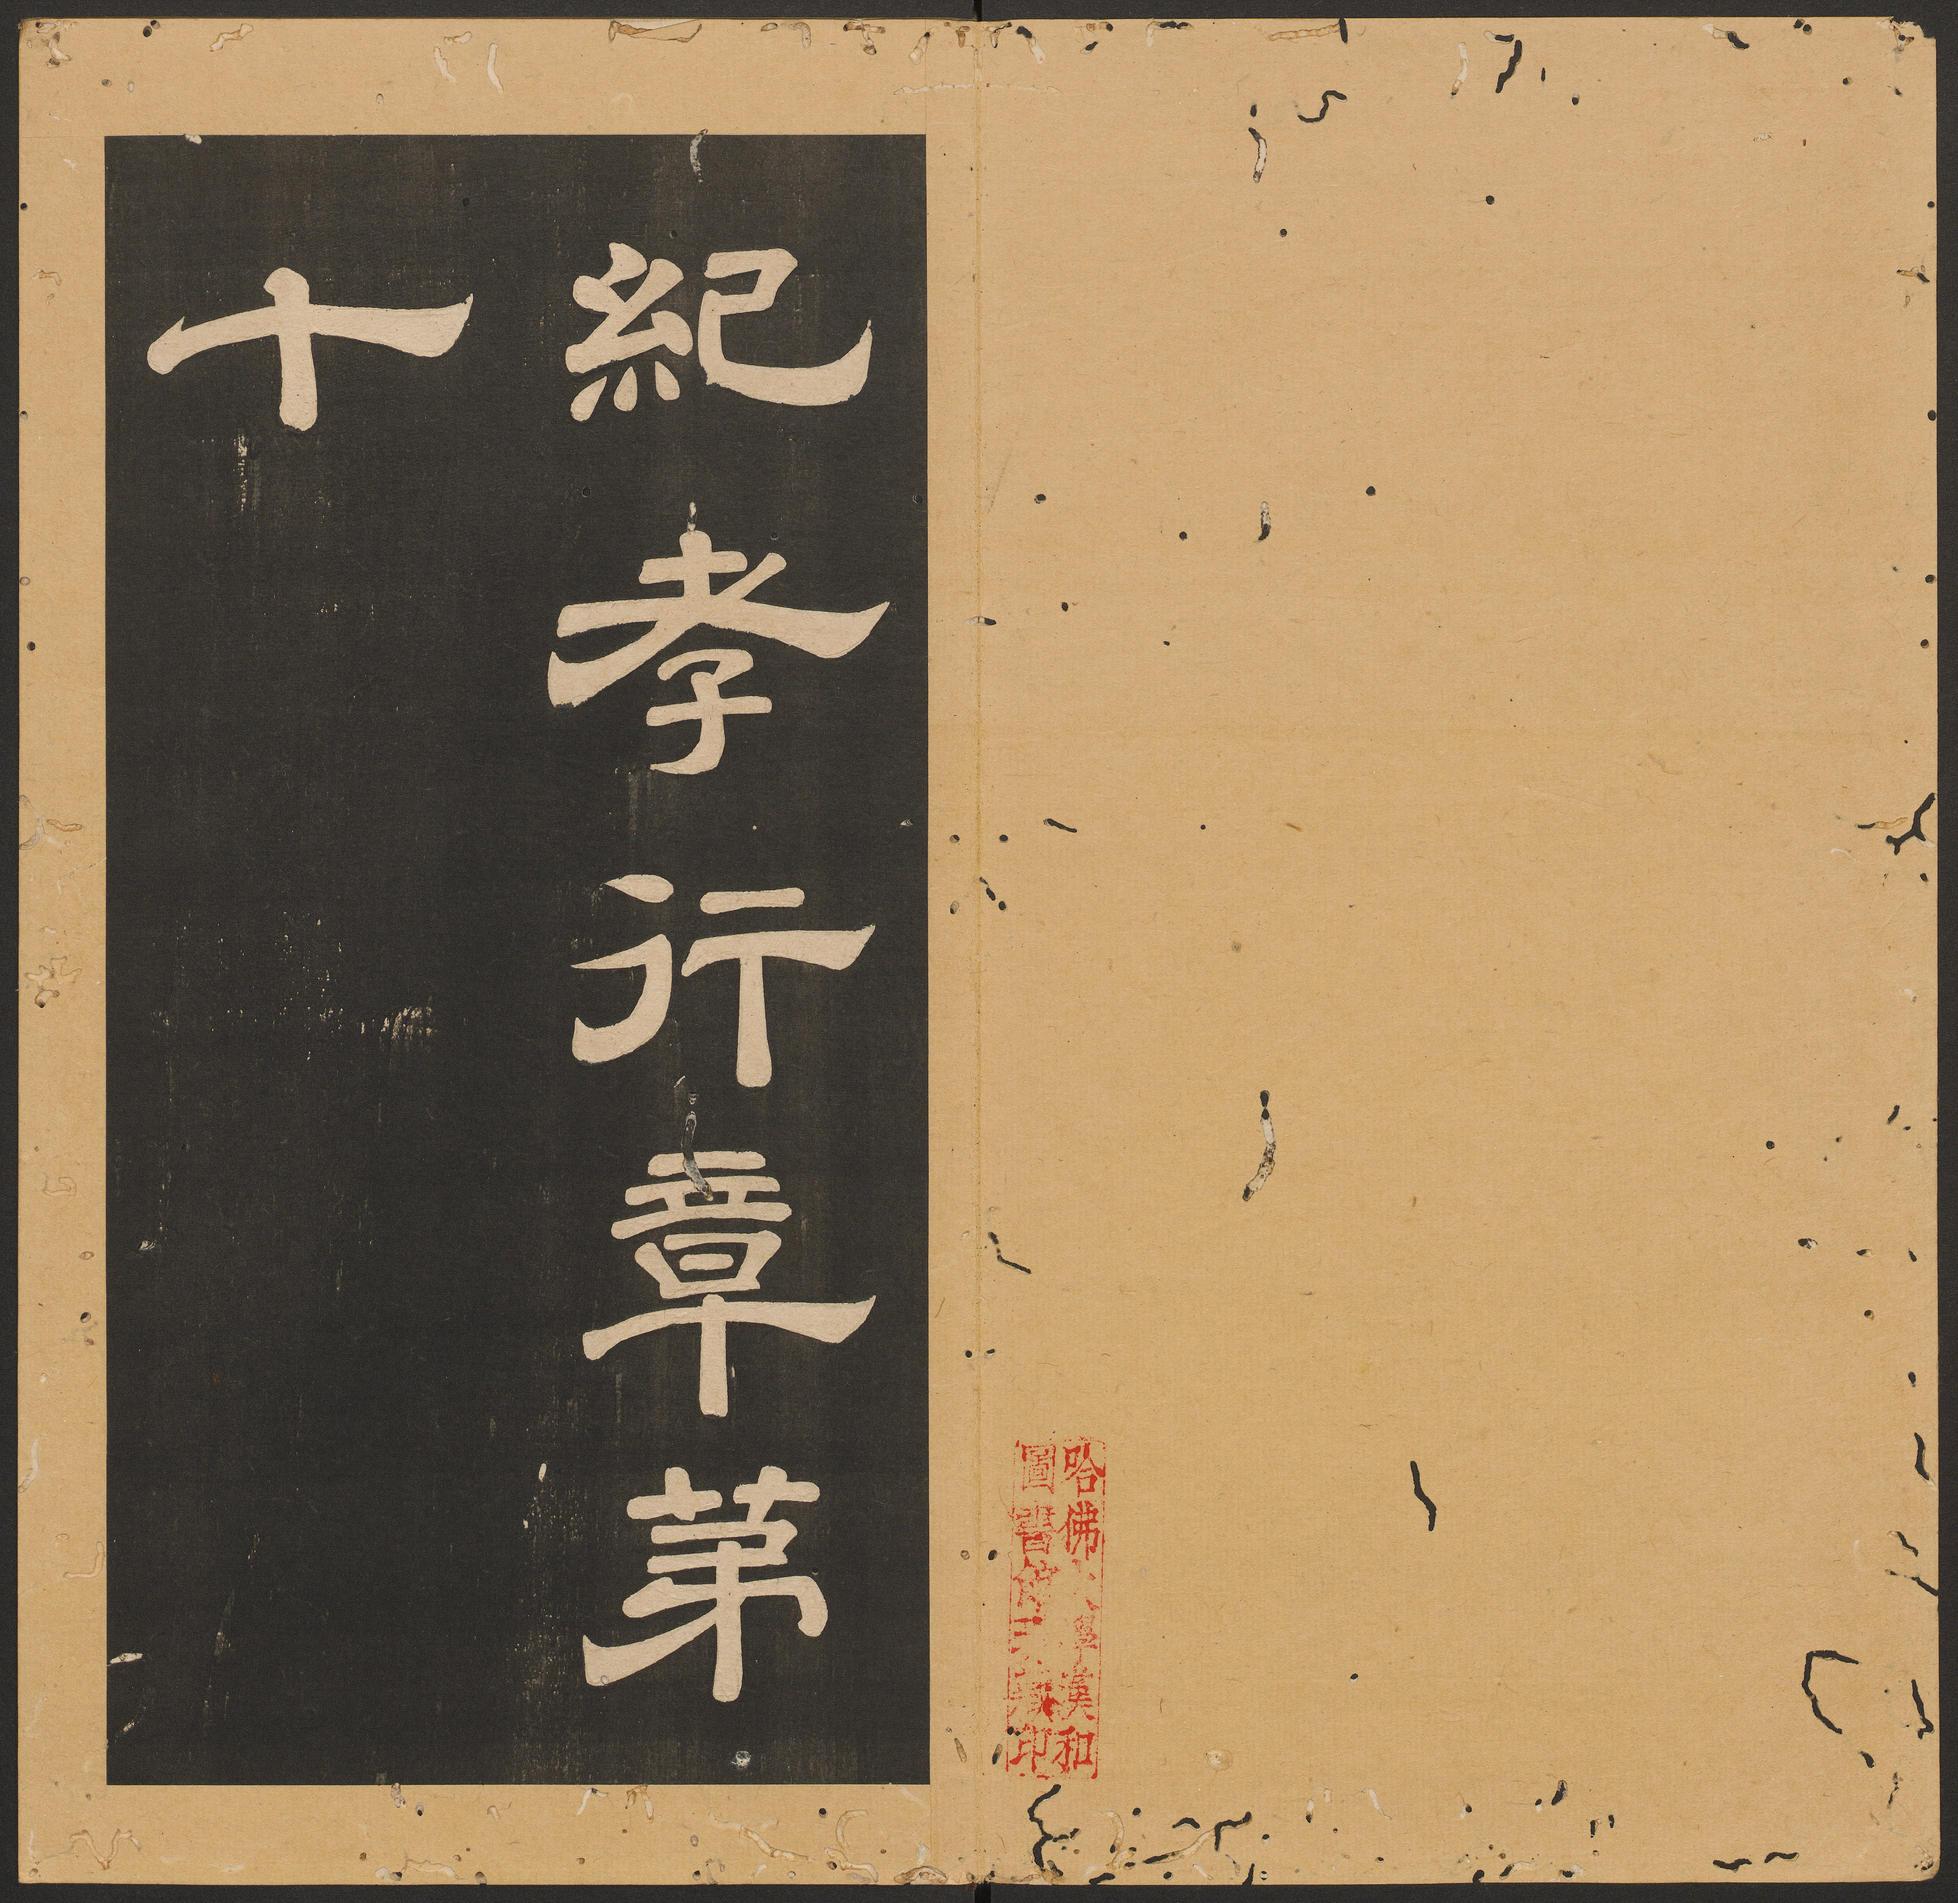 紀孝行章苐
十
哈佛大學漢和
圖書館珍藏印